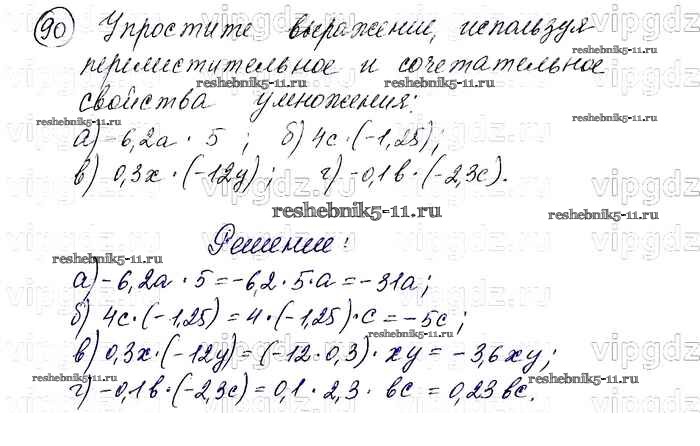 90 Упростите выражение, используя
переместительное и сочетательное
свойства умножения:
а) -6,2a · 5 ; б) 4c · (-1,25);
в) 0,3x · (-12y) ; г) -0,1b · (-2,3c).
Решение:
а) -6,2a · 5 = -6,2 · 5 · a = -31a;
б) 4c · (-1,25) = 4 · (-1,25) · c = -5c;
в) 0,3x · (-12y) = (-12 · 0,3) · xy = -3,6xy;
г) -0,1b · (-2,3c) = 0,1 · 2,3 · bc = 0,23bc.
reshebnik5-11.ru
vipgdz.ru